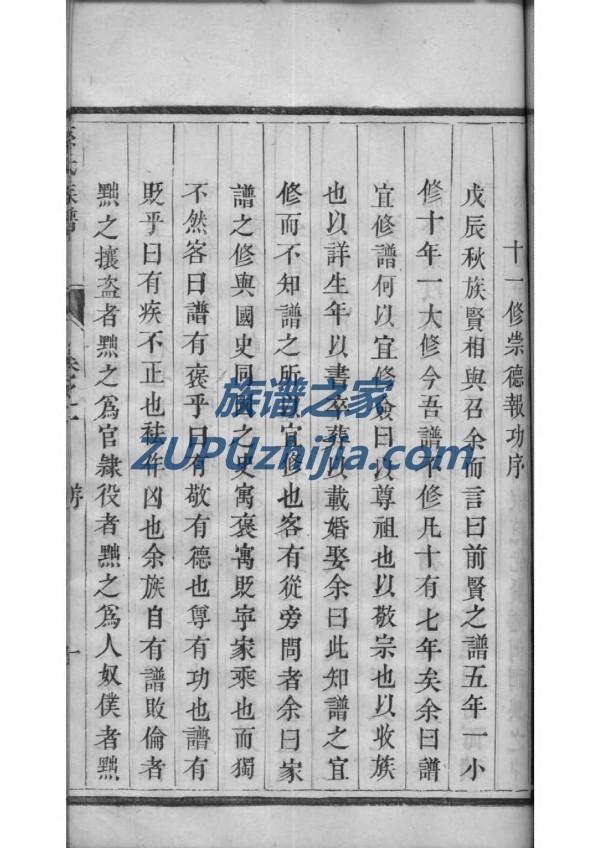 十一修崇德報功序
戊辰秋族賢相與召余而言曰前賢之譜五年一小
修十年一大修今吾譜不修凡十有七年矣余曰譜
宜修譜何以宜修僉曰以尊祖也以敬宗也以收族
也以詳生年以書卒葬以載婚娶余曰此知譜之宜
修而不知譜之所以宜修也客有從旁問者余曰家
譜之修與國史同國之史寓褒寓貶寧家乘也而獨
不然客曰譜有褒乎曰有敬有德也尊有功也譜有
貶乎曰有疾不正也祛作凶也余族自有譜敗倫者
黜之攘盗者黜之爲官隸役者黜之爲人奴僕者黜
氏族譜
序
十
族谱之家
ZUPUzhijia.com